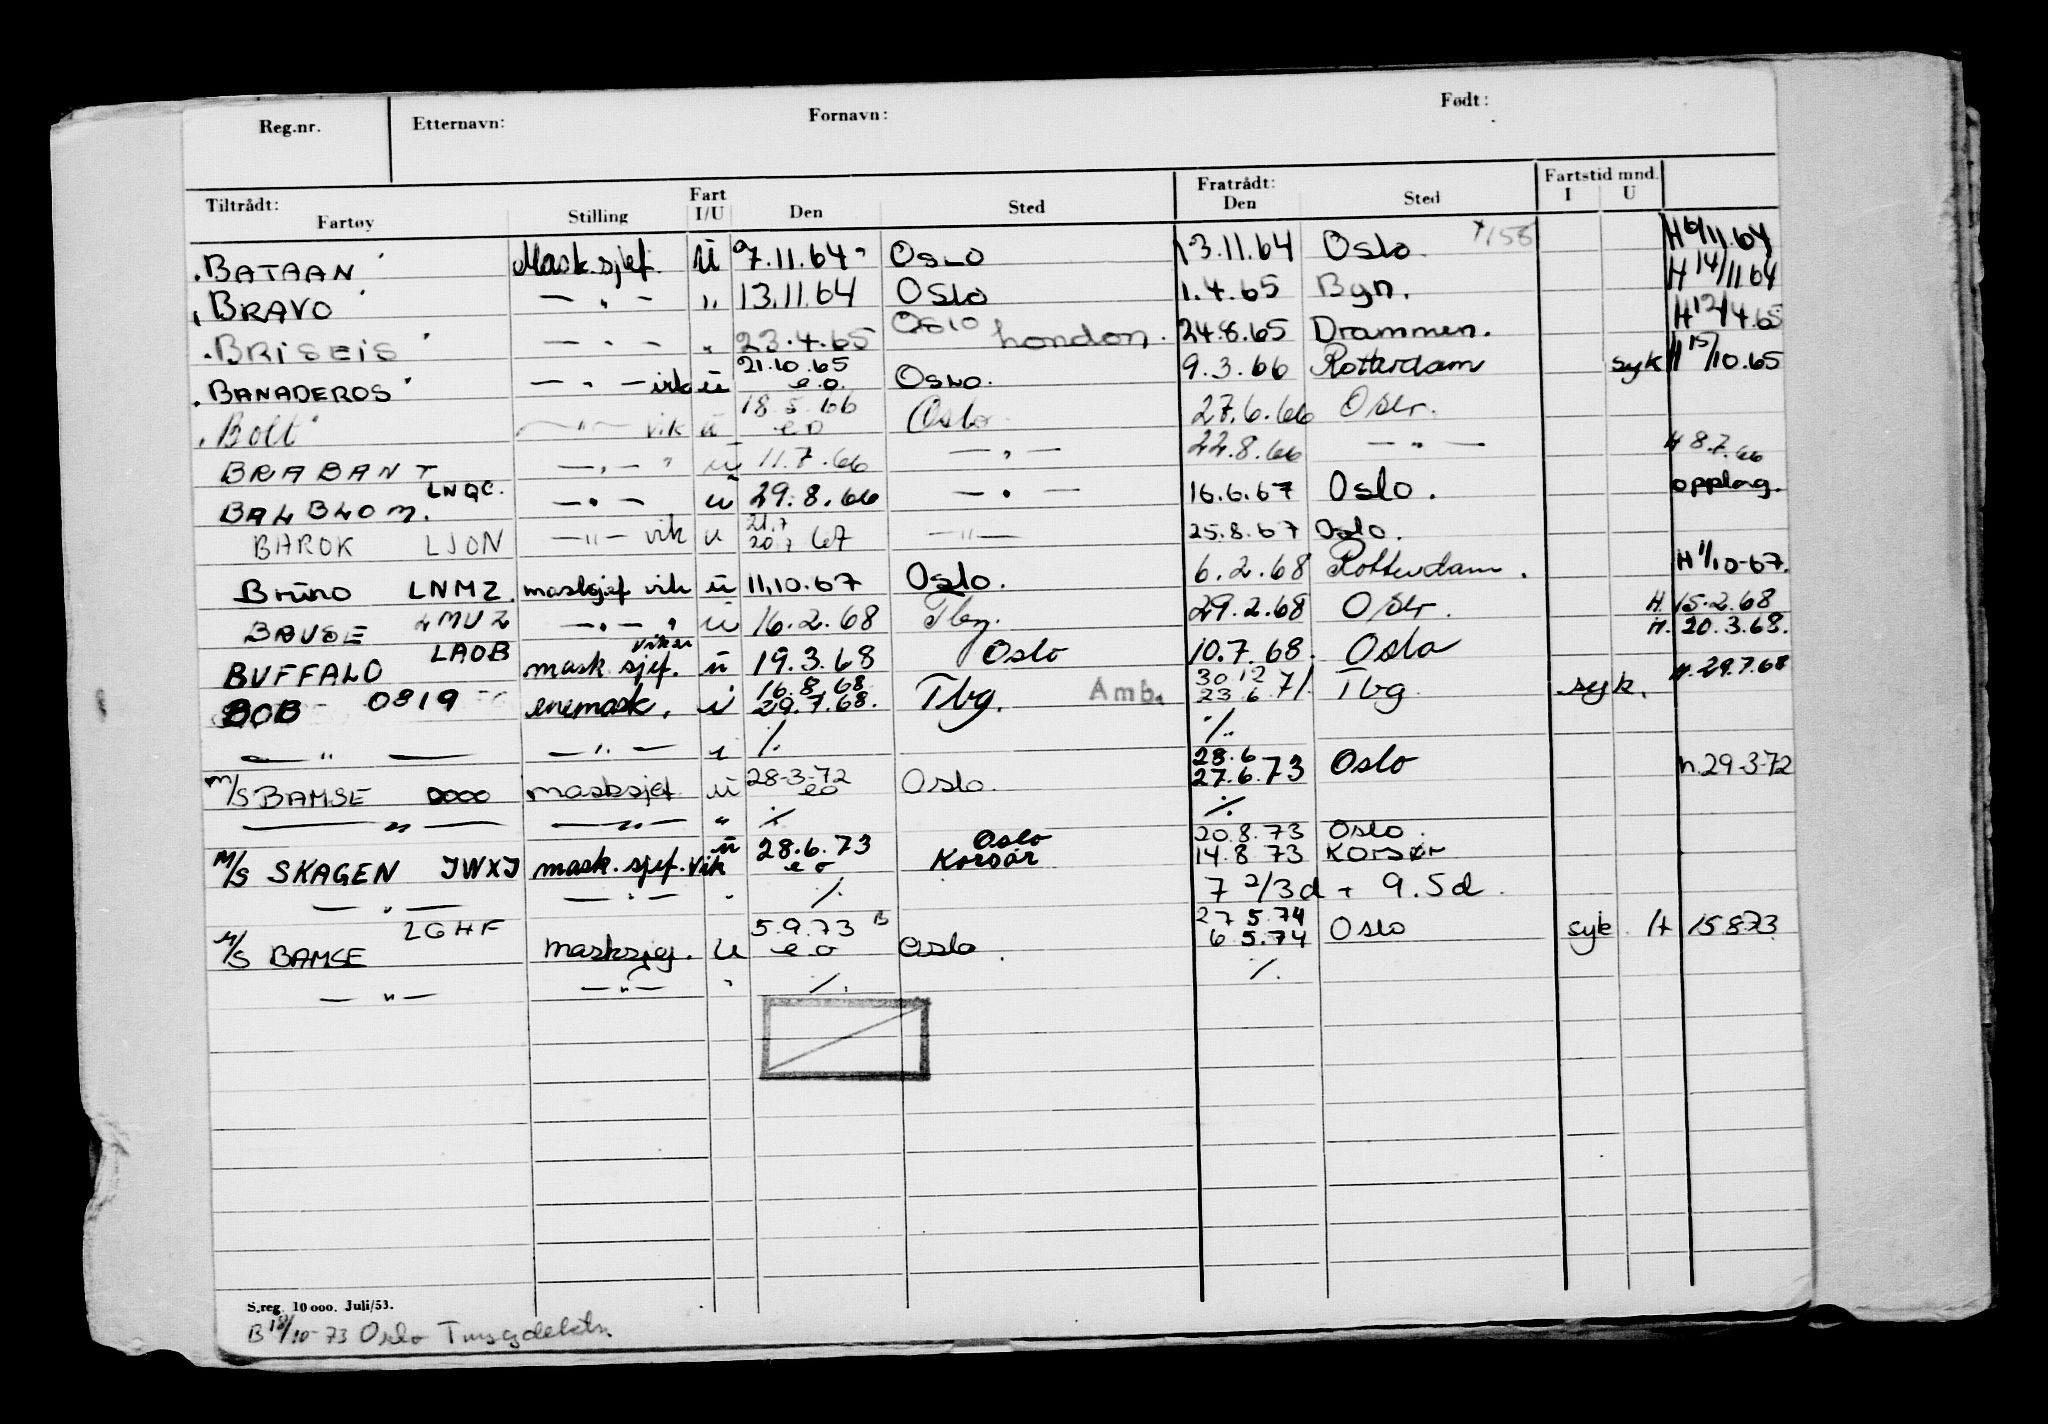 Reg.nr. Etternavn: Fornavn: Født:
Tiltrådt: Fart Fratrådt: Fartstid mnd.
Fartøy Stilling I/U Den Sted Den Sted I U
BATAAN Mask.sjef. U 7.11.64 Oslo 13.11.64 Oslo H 6/11.64
BRAVO — " — " 13.11.64 Oslo 1.4.65 Bgn. H 14/11 64
BRISEIS — " — " 23.4.65 Oslo London. 24.8.65 Drammen. H 12/4.65
BANADEROS — " — vik u 21.10.65 e.o. Oslo. 9.3.66 Rotterdam syk H 15/10.65
Bolt — " — vik u 18.5.66 e o Oslo 27.6.66 Oslo.
BRABANT — " — " u 11.7.66 — " — 22.8.66 — " — H 8.7.66
BALBLOM. LNQC. — " — u 29.8.66 — " — 16.6.67 Oslo. opplag.
BAROK LJON — " — vik u 21.7 20.7 67 — " — 25.8.67 Oslo.
Bruno LNMZ. masksjef vik u 11.10.67 Oslo. 6.2.68 Rotterdam. H 11/10-67.
BAUSE LMUZ — " — " u 16.2.68 Tbg. 29.2.68 Oslo. H. 15.2.68
BUFFALO LAOB mask.sjef. vikar u 19.3.68 Oslo 10.7.68. Oslo H. 20.3.68.
BOB 0819 enemask. i 16.8.68 29.7.68. Tbg. Amb. 30.12 23.6.71. Tbg. syk. H. 29.7.68
— " — — " — i ./. ./.
M/S BAMSE masksjef u 28-3-72 eo Oslo. 28.6 27.6.73 Oslo h.29-3-72
— " — — " — " ./. ./.
M/S SKAGEN JWXJ mask.sjef. vik u 28.6.73 e o Oslo Korsør 20.8.73 Oslo. 14.8 73 Korsør
— " — — " — " ./. 7 2/3d + 9.5d.
M/S BAMSE LGHF masksjef. U 5.9.73 B e o Oslo 27 5.74 6 5.74 Oslo syk H 15873
— " — — " — " ./. ./.
S.reg. 10 000. Juli/53.
B 18/10-73 Oslo